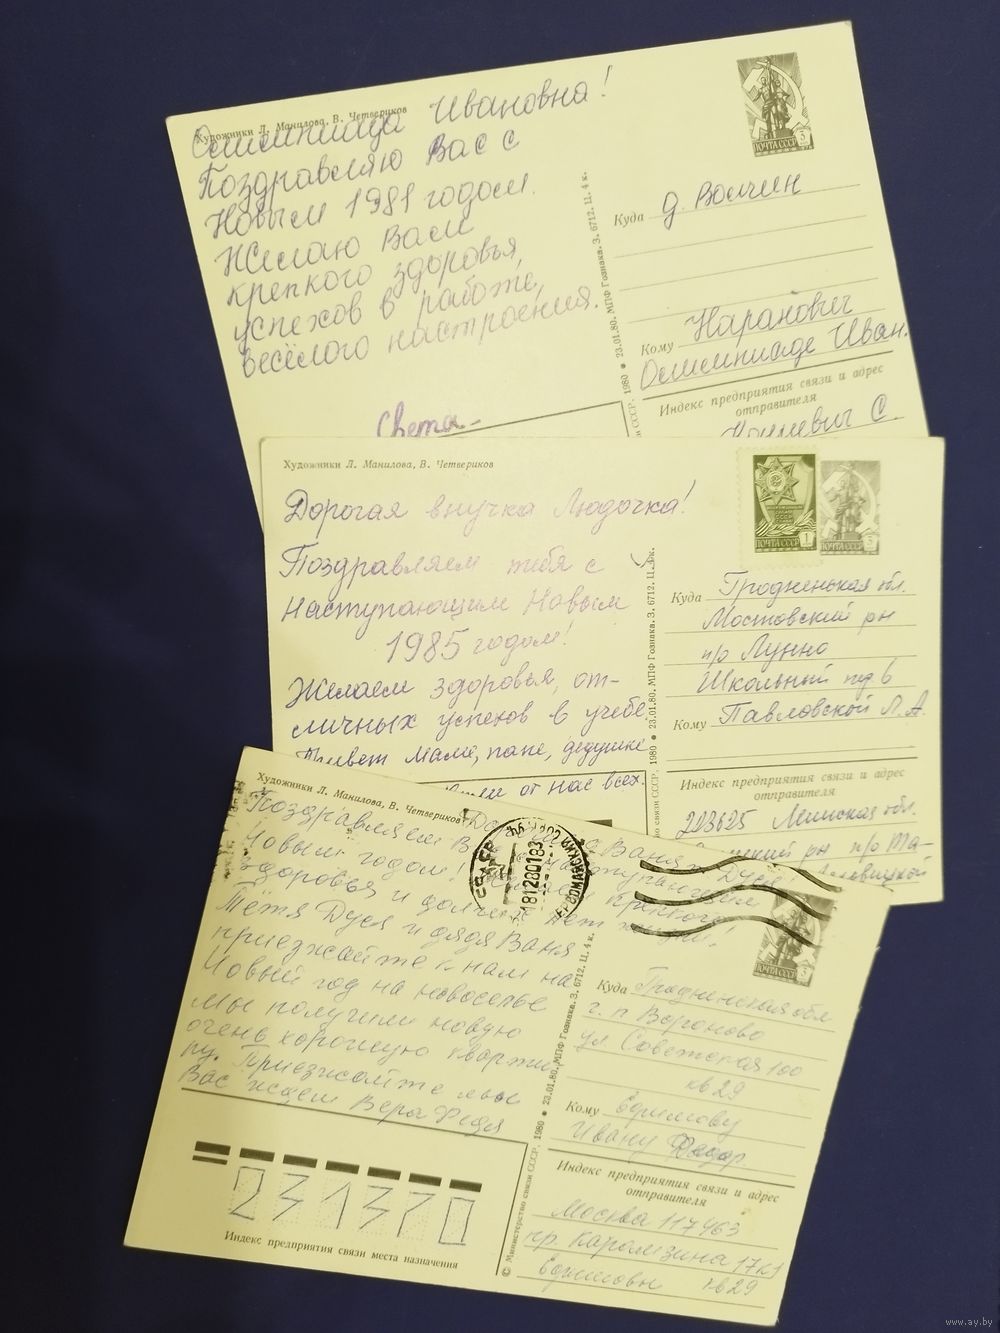 Художники Л. Манилова, В. Четвериков
Олимпиада Ивановна!
Поздравляю Вас с
Новым 1981 годом.
Желаю Вам
крепкого здоровья,
успехов в работе,
весёлого настроения.
Света
ПОЧТА СССР 3
Куда д. Волчин
Кому Наранович
Олимпиаде Иван.
Индекс предприятия связи и адрес
отправителя
С.
23.01.80. МПФ Гознака. З. 6712. Ц. 4 к.
Художники Л. Манилова, В. Четвериков
Дорогая внучка Людочка!
Поздравляем тебя с
Наступающим Новым
1985 годом!
Желаем здоровья, от-
личных успехов в учебе.
Привет маме, папе, дедушке
от нас всех.
ПОЧТА СССР 1
ПОЧТА СССР 3
Куда Гродненская обл.
Мостовский рн
п/о Лунно
Школьный пер 6
Кому Павловской Л. А.
Индекс предприятия связи и адрес
отправителя
223625 Минская обл.
рн п/о
связи СССР, 1980 • 23.01.80. МПФ Гознака. З. 6712. Ц. 4к.
Художники Л. Манилова, В. Четвериков
Поздравляем Ваня Дуся
Новым годом! крепкого
здоровья и долгих лет жизни!
Тётя Дуся и дядя Ваня
приезжайте к нам на
Новый год на новоселье
Мы получили новую
очень хорошую кварти
ру. Приезжайте мы
Вас ждем Вера Федя
181280183
ПОЧТА СССР 3
Куда Гродненская обл
г. п Вороново
ул Советская 100
кв 29
Кому
Ивану Федор.
Индекс предприятия связи и адрес
отправителя
Москва 117463
пр. Карамзина 17к1
кв29
231370
Индекс предприятия связи места назначения
© Министерство связи СССР, 1980 • 23.01.80. МПФ Гознака. З. 6712. Ц. 4 к.
www.ay.by